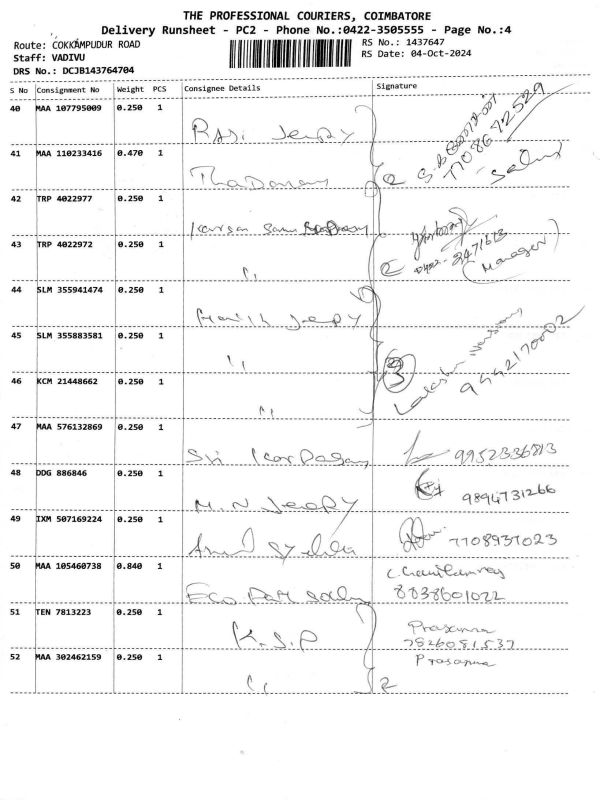 THE PROFESSIONAL COURIERS, COIMBATORE
Delivery Runsheet - PC2 - Phone No.:0422-3505555 - Page No.:4
Route: COKKAMPUDUR ROAD
Staff: VADIVU
DRS No.: DCJB143764704
RS No.: 1437647
RS Date: 04-Oct-2024
S No Consignment No Weight PCS Consignee Details Signature
40 MAA 107795009 0.250 1
7708672529
41 MAA 110233416 0.470 1
2
42 TRP 4022977 0.250 1
43 TRP 4022972 0.250 1 "
2 (Manager)
44 SLM 355941474 0.250 1
45 SLM 355883581 0.250 1 "
3 9442170002
46 KCM 21448662 0.250 1 "
47 MAA 576132869 0.250 1
Sri 9952336813
48 DDG 886846 0.250 1
M.N 9894731266
49 IXM 507169224 0.250 1
7708937023
50 MAA 105460738 0.840 1
8838601022
51 TEN 7813223 0.250 1
K.S.P Prasanna
7826081537
52 MAA 302462159 0.250 1 Prasanna
" 2